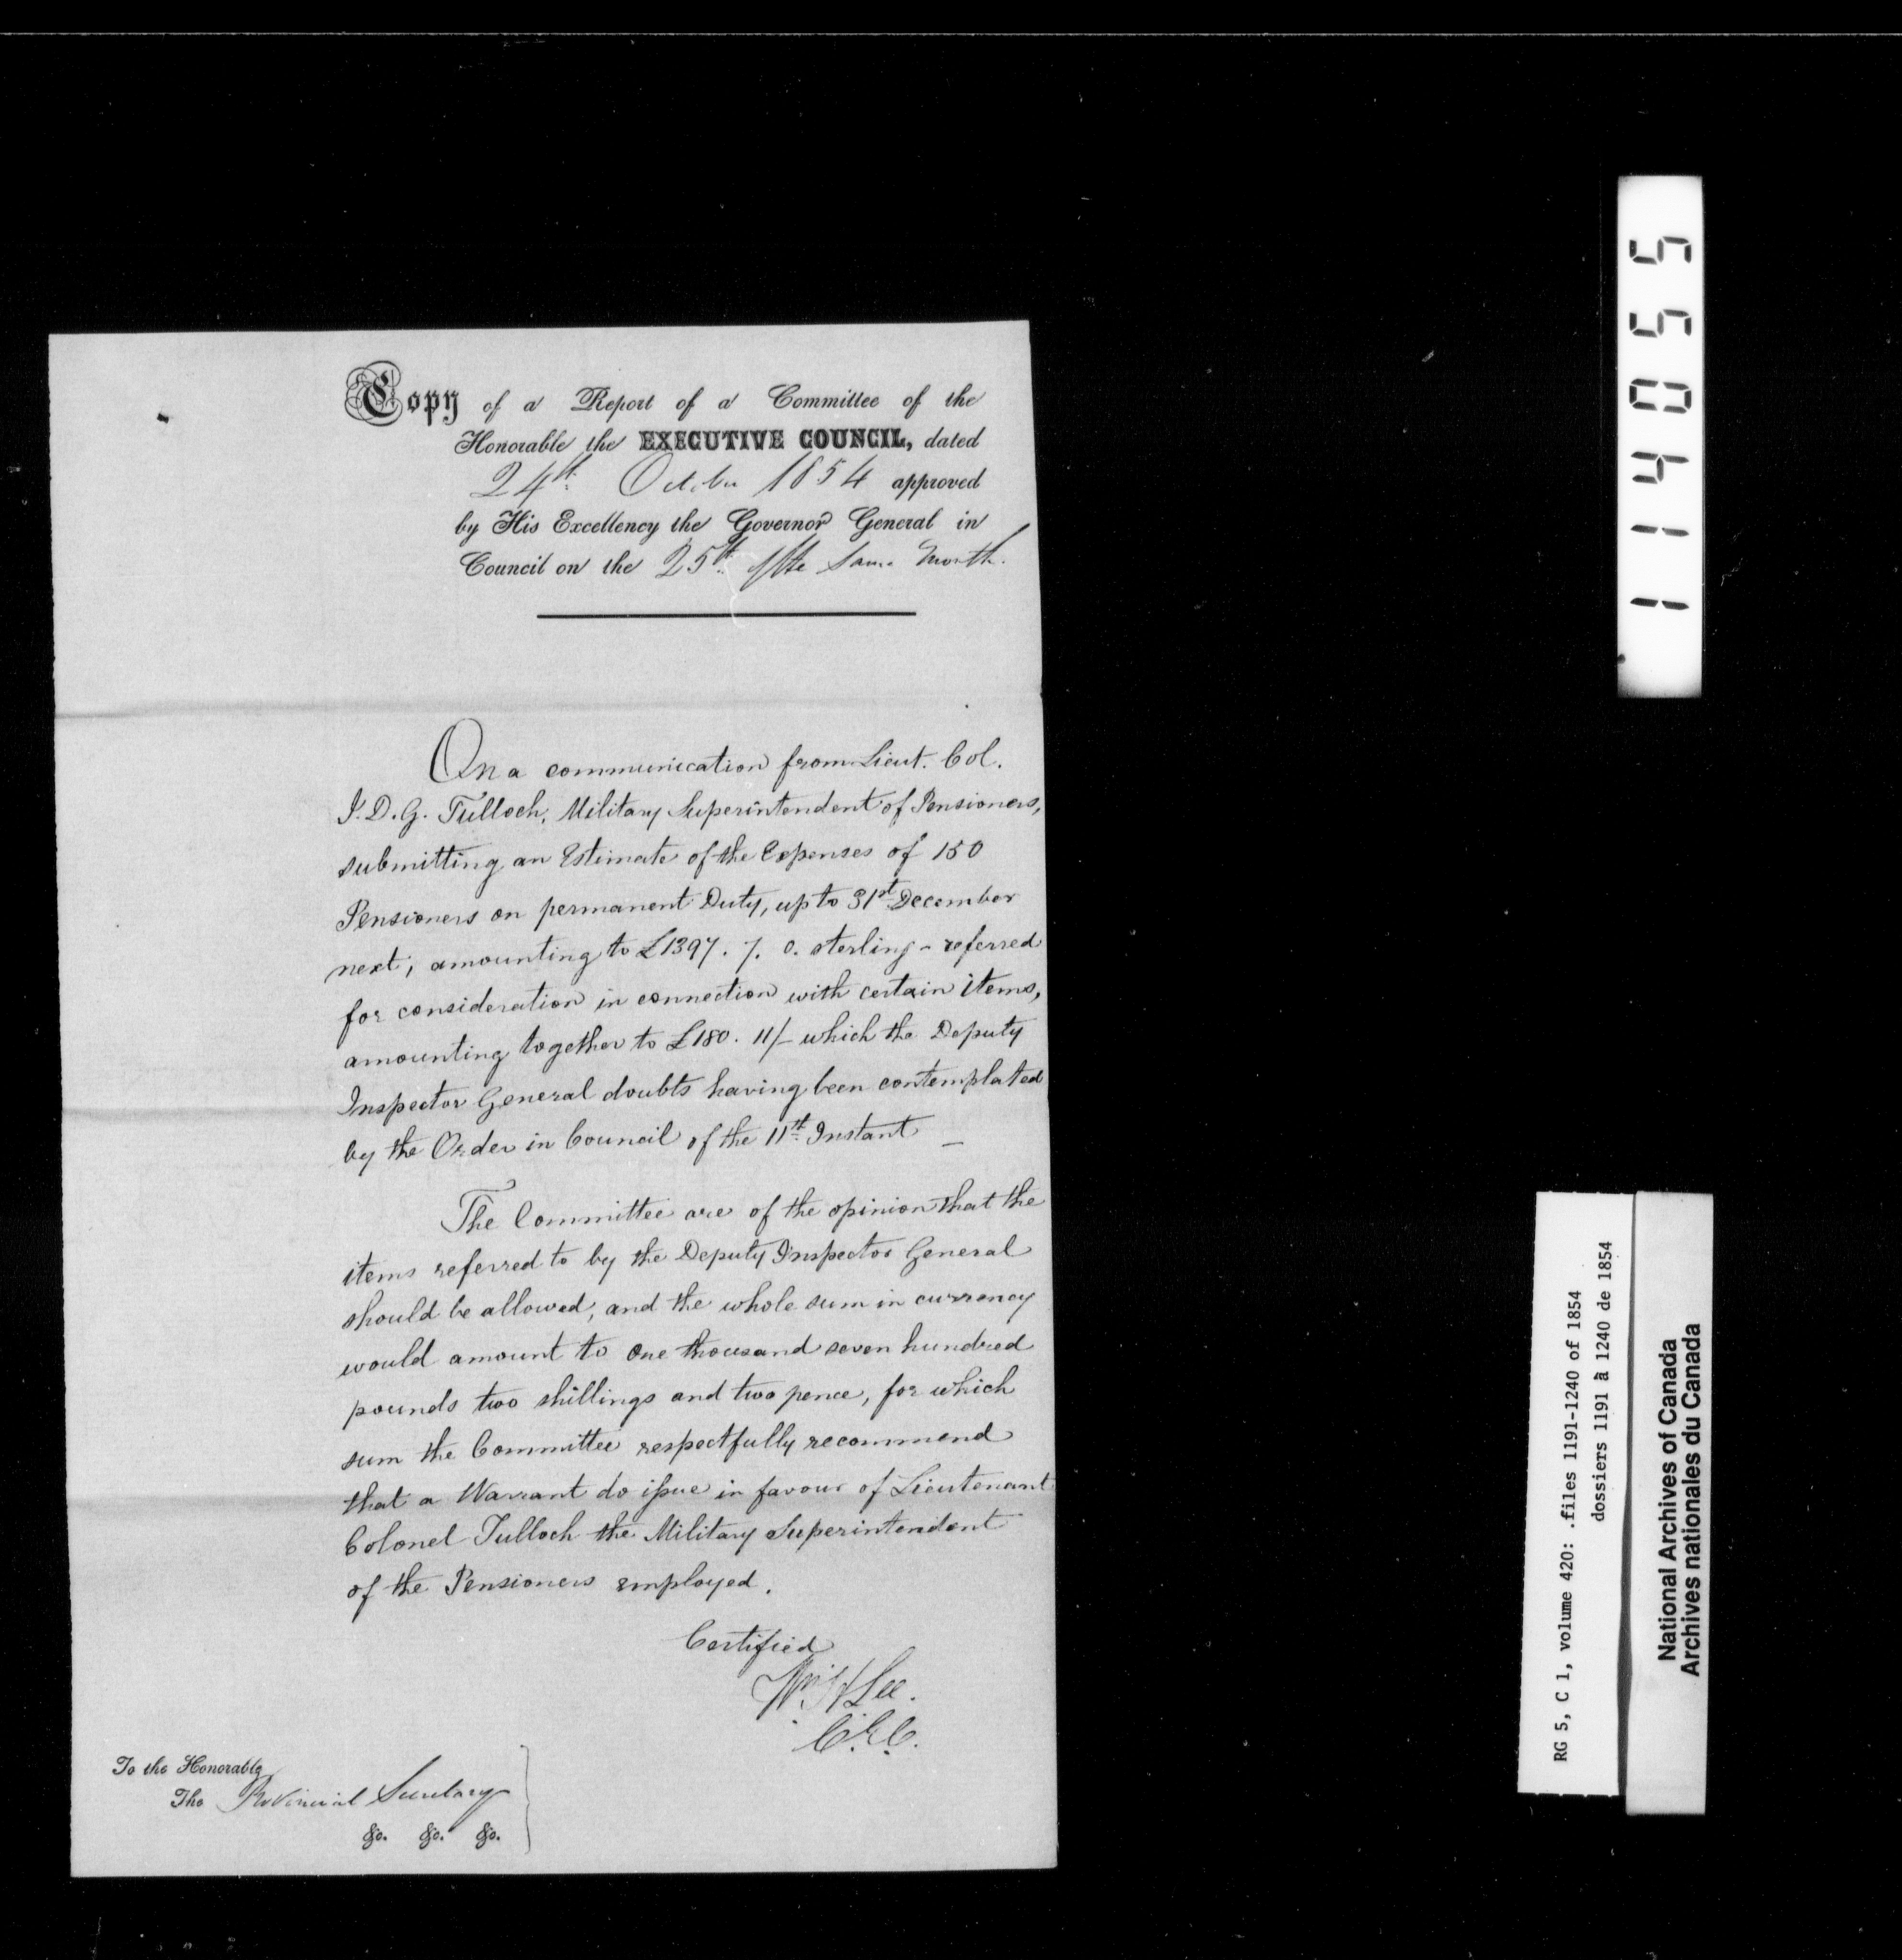 Copy of a Report of a Committee of the
Honorable the EXECUTIVE COUNCIL, dated
24th. October 1854 approved
by His Excellency the Governor General in
Council on the 25th. of the same month.
On a communication from Lieut. Col.
I. D. G. Tulloch, Military Superintendent of Pensioners,
submitting an Estimate of the Expenses of 150
Pensioners on permanent Duty, up to 31st December
next, amounting to £1397. 7. 0. sterling - referred
for consideration in connection with certain items,
amounting together to £180. 11/- which the Deputy
Inspector General doubts having been contemplated
by the Order in Council of the 11th. Instant —
The Committee are of the opinion that the
items referred to by the Deputy Inspector General
should be allowed, and the whole sum in currency
would amount to One thousand seven hundred
pounds two shillings and two pence, for which
sum the Committee respectfully recommend
that a Warrant do issue in favour of Lieutenant
Colonel Tulloch the Military Superintendent
of the Pensioners employed.
Certified
Wm. H Lee.
C.E.C.
To the Honorable
The Provincial Secretary
&c. &c. &c.
114055
RG 5, C 1, volume 420: .files 1191-1240 of 1854
dossiers 1191 à 1240 de 1854
National Archives of Canada
Archives nationales du Canada